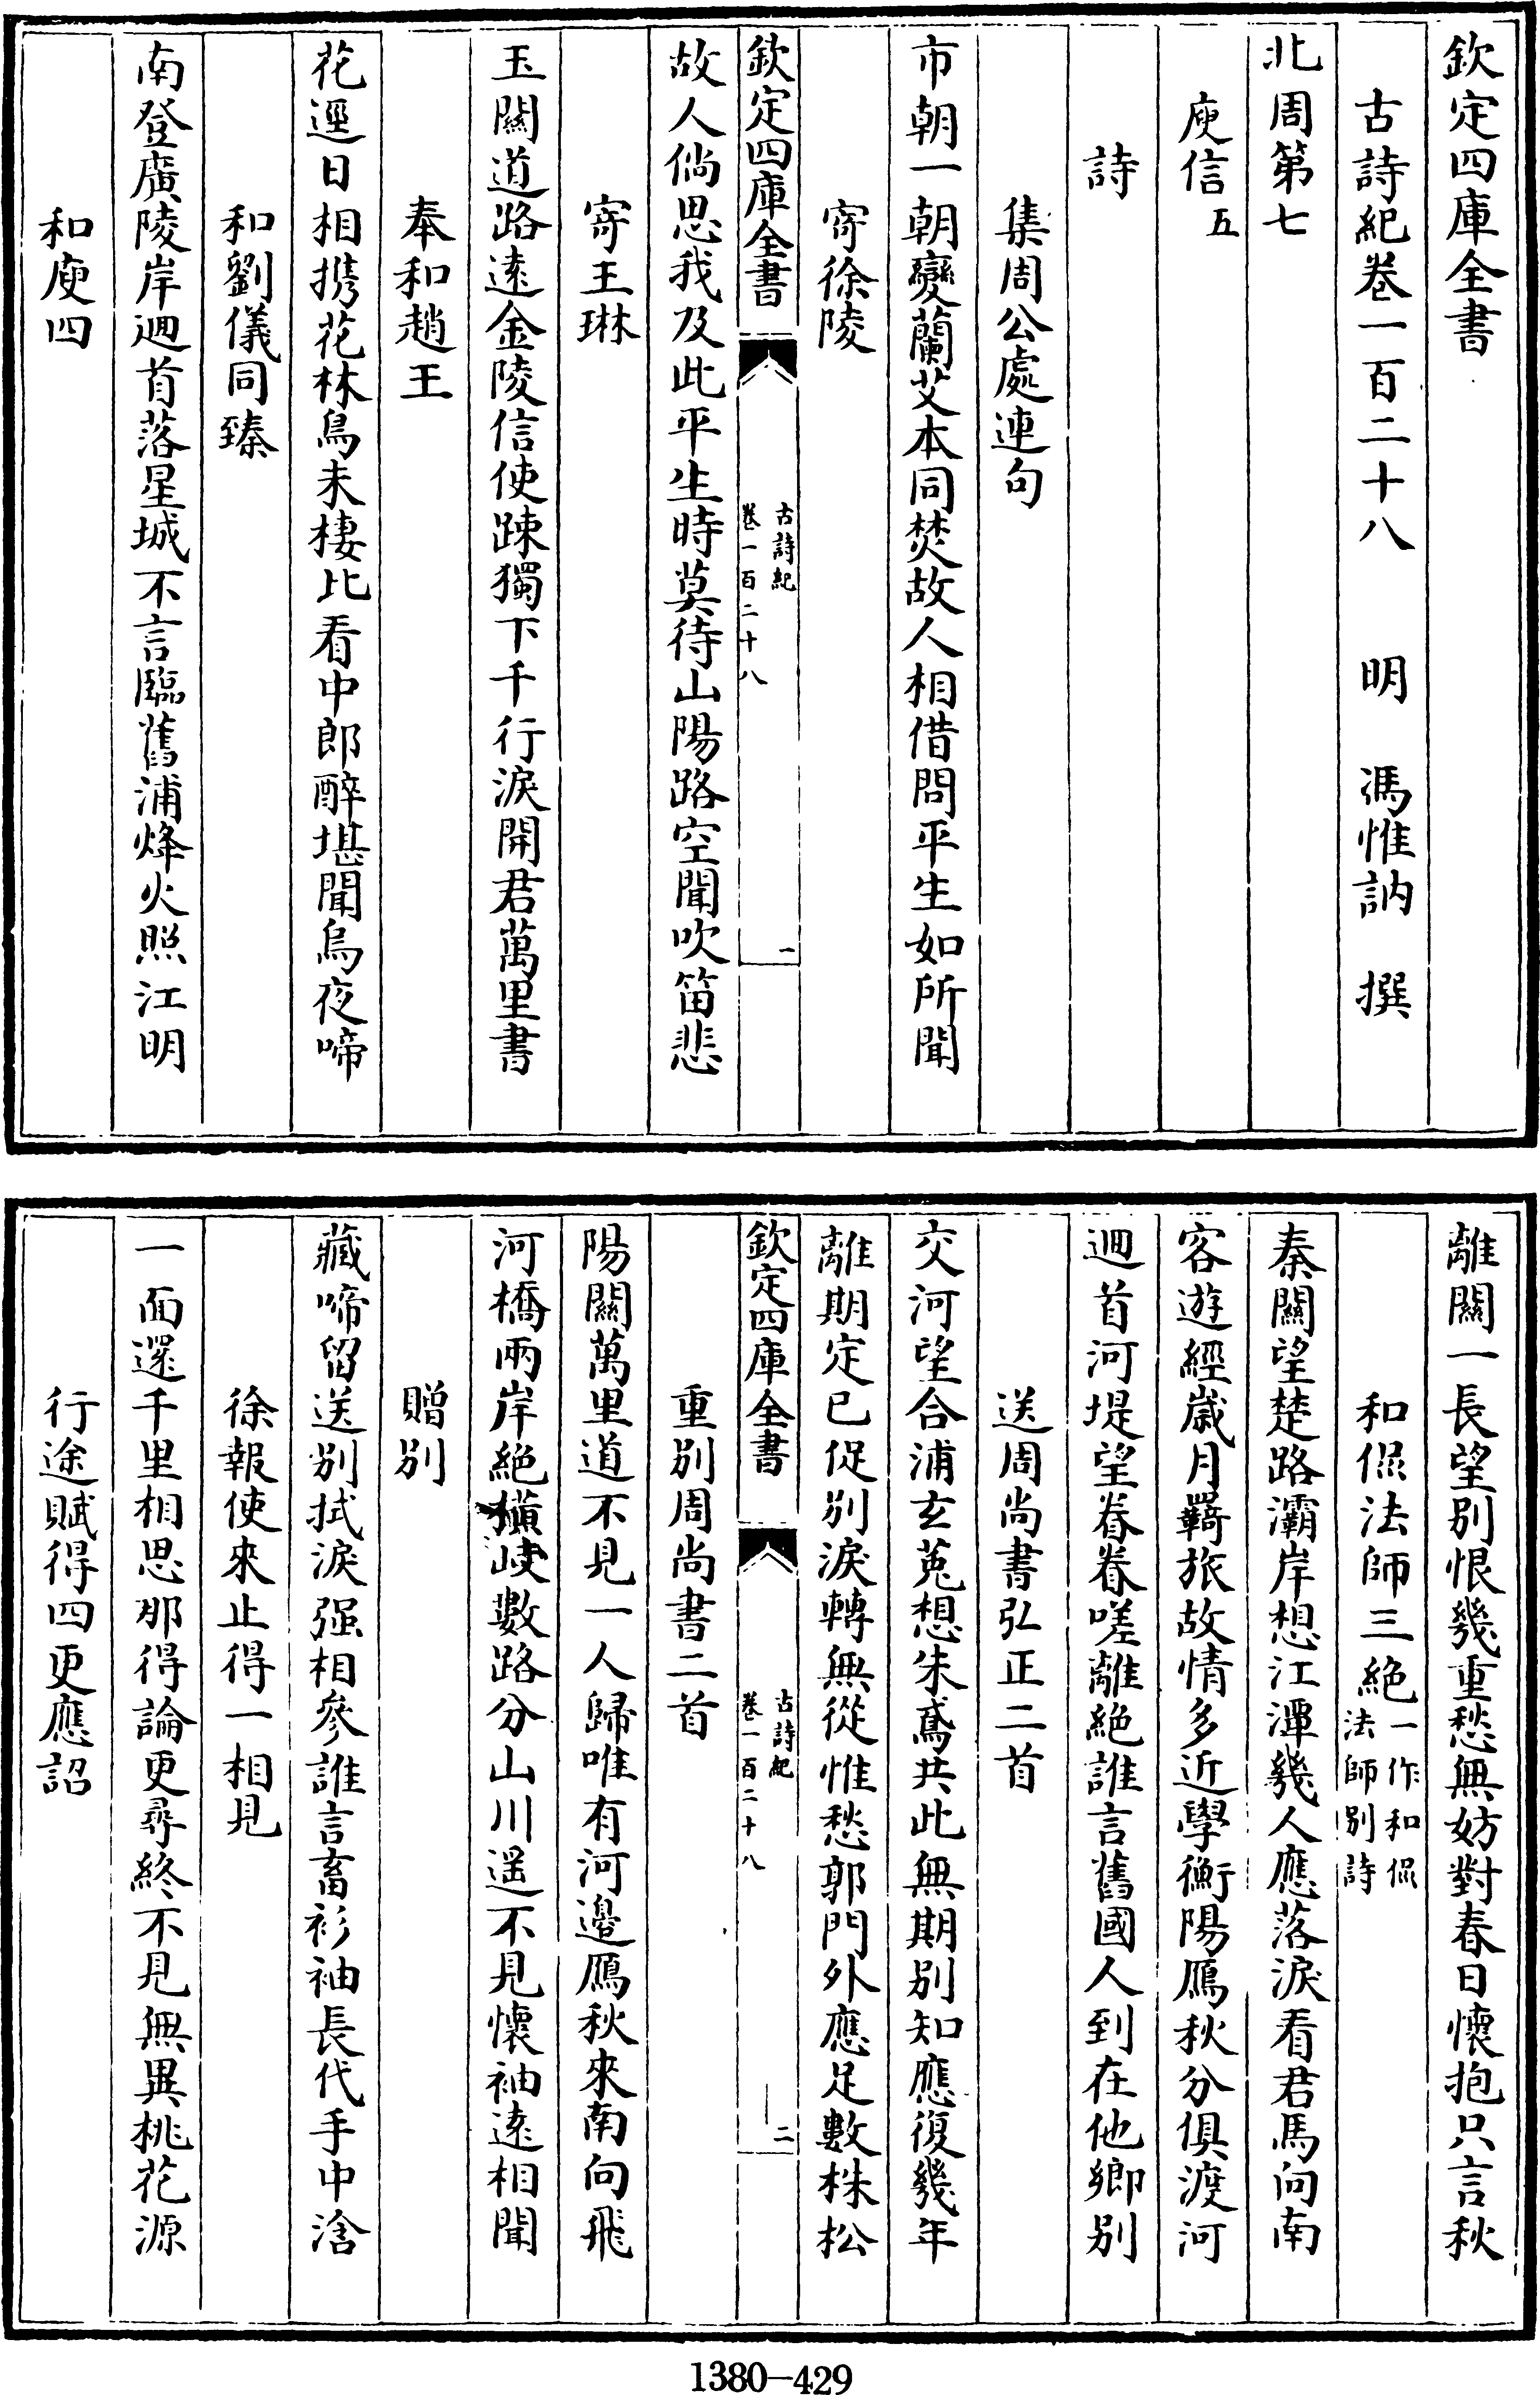 欽定四庫全書
古詩紀卷一百二十八 明 馮惟訥 撰
北周第七
庾信五
詩
集周公處連句
市朝一朝變蘭艾本同焚故人相借問平生如所聞
寄徐陵
欽定四庫全書
古詩紀
卷一百二十八
一
故人倘思我及此平生時莫待山陽路空聞吹笛悲
寄王琳
玉關道路遠金陵信使踈獨下千行淚開君萬里書
奉和趙王
花逕日相携花林鳥未棲比看中郎醉堪聞烏夜啼
和劉儀同臻
南登廣陵岸迴首落星城不言臨舊浦烽火照江明
和庾四
離關一長望别恨幾重愁無妨對春日懷抱只言秋
和侃法師三絶一作和侃
法師别詩
秦關望楚路灞岸想江潭幾人應落淚看君馬向南
客遊經歳月羇旅故情多近學衡陽鴈秋分俱渡河
迴首河堤望眷眷嗟離絶誰言舊國人到在他鄉别
送周尚書弘正二首
交河望合浦玄菟想朱鳶共此無期别知應復幾年
離期定已促别淚轉無從惟愁郭門外應足數株松
欽定四庫全書
古詩紀
卷一百二十八
二
重别周尚書二首
陽關萬里道不見一人歸唯有河邊鴈秋來南向飛
河橋兩岸絶横岐數路分山川遥不見懷袖遠相聞
贈别
藏啼留送别拭淚强相參誰言畜衫袖長代手中浛
徐報使來止得一相見
一面還千里相思那得論更尋終不見無異桃花源
行途賦得四更應詔
1380-429